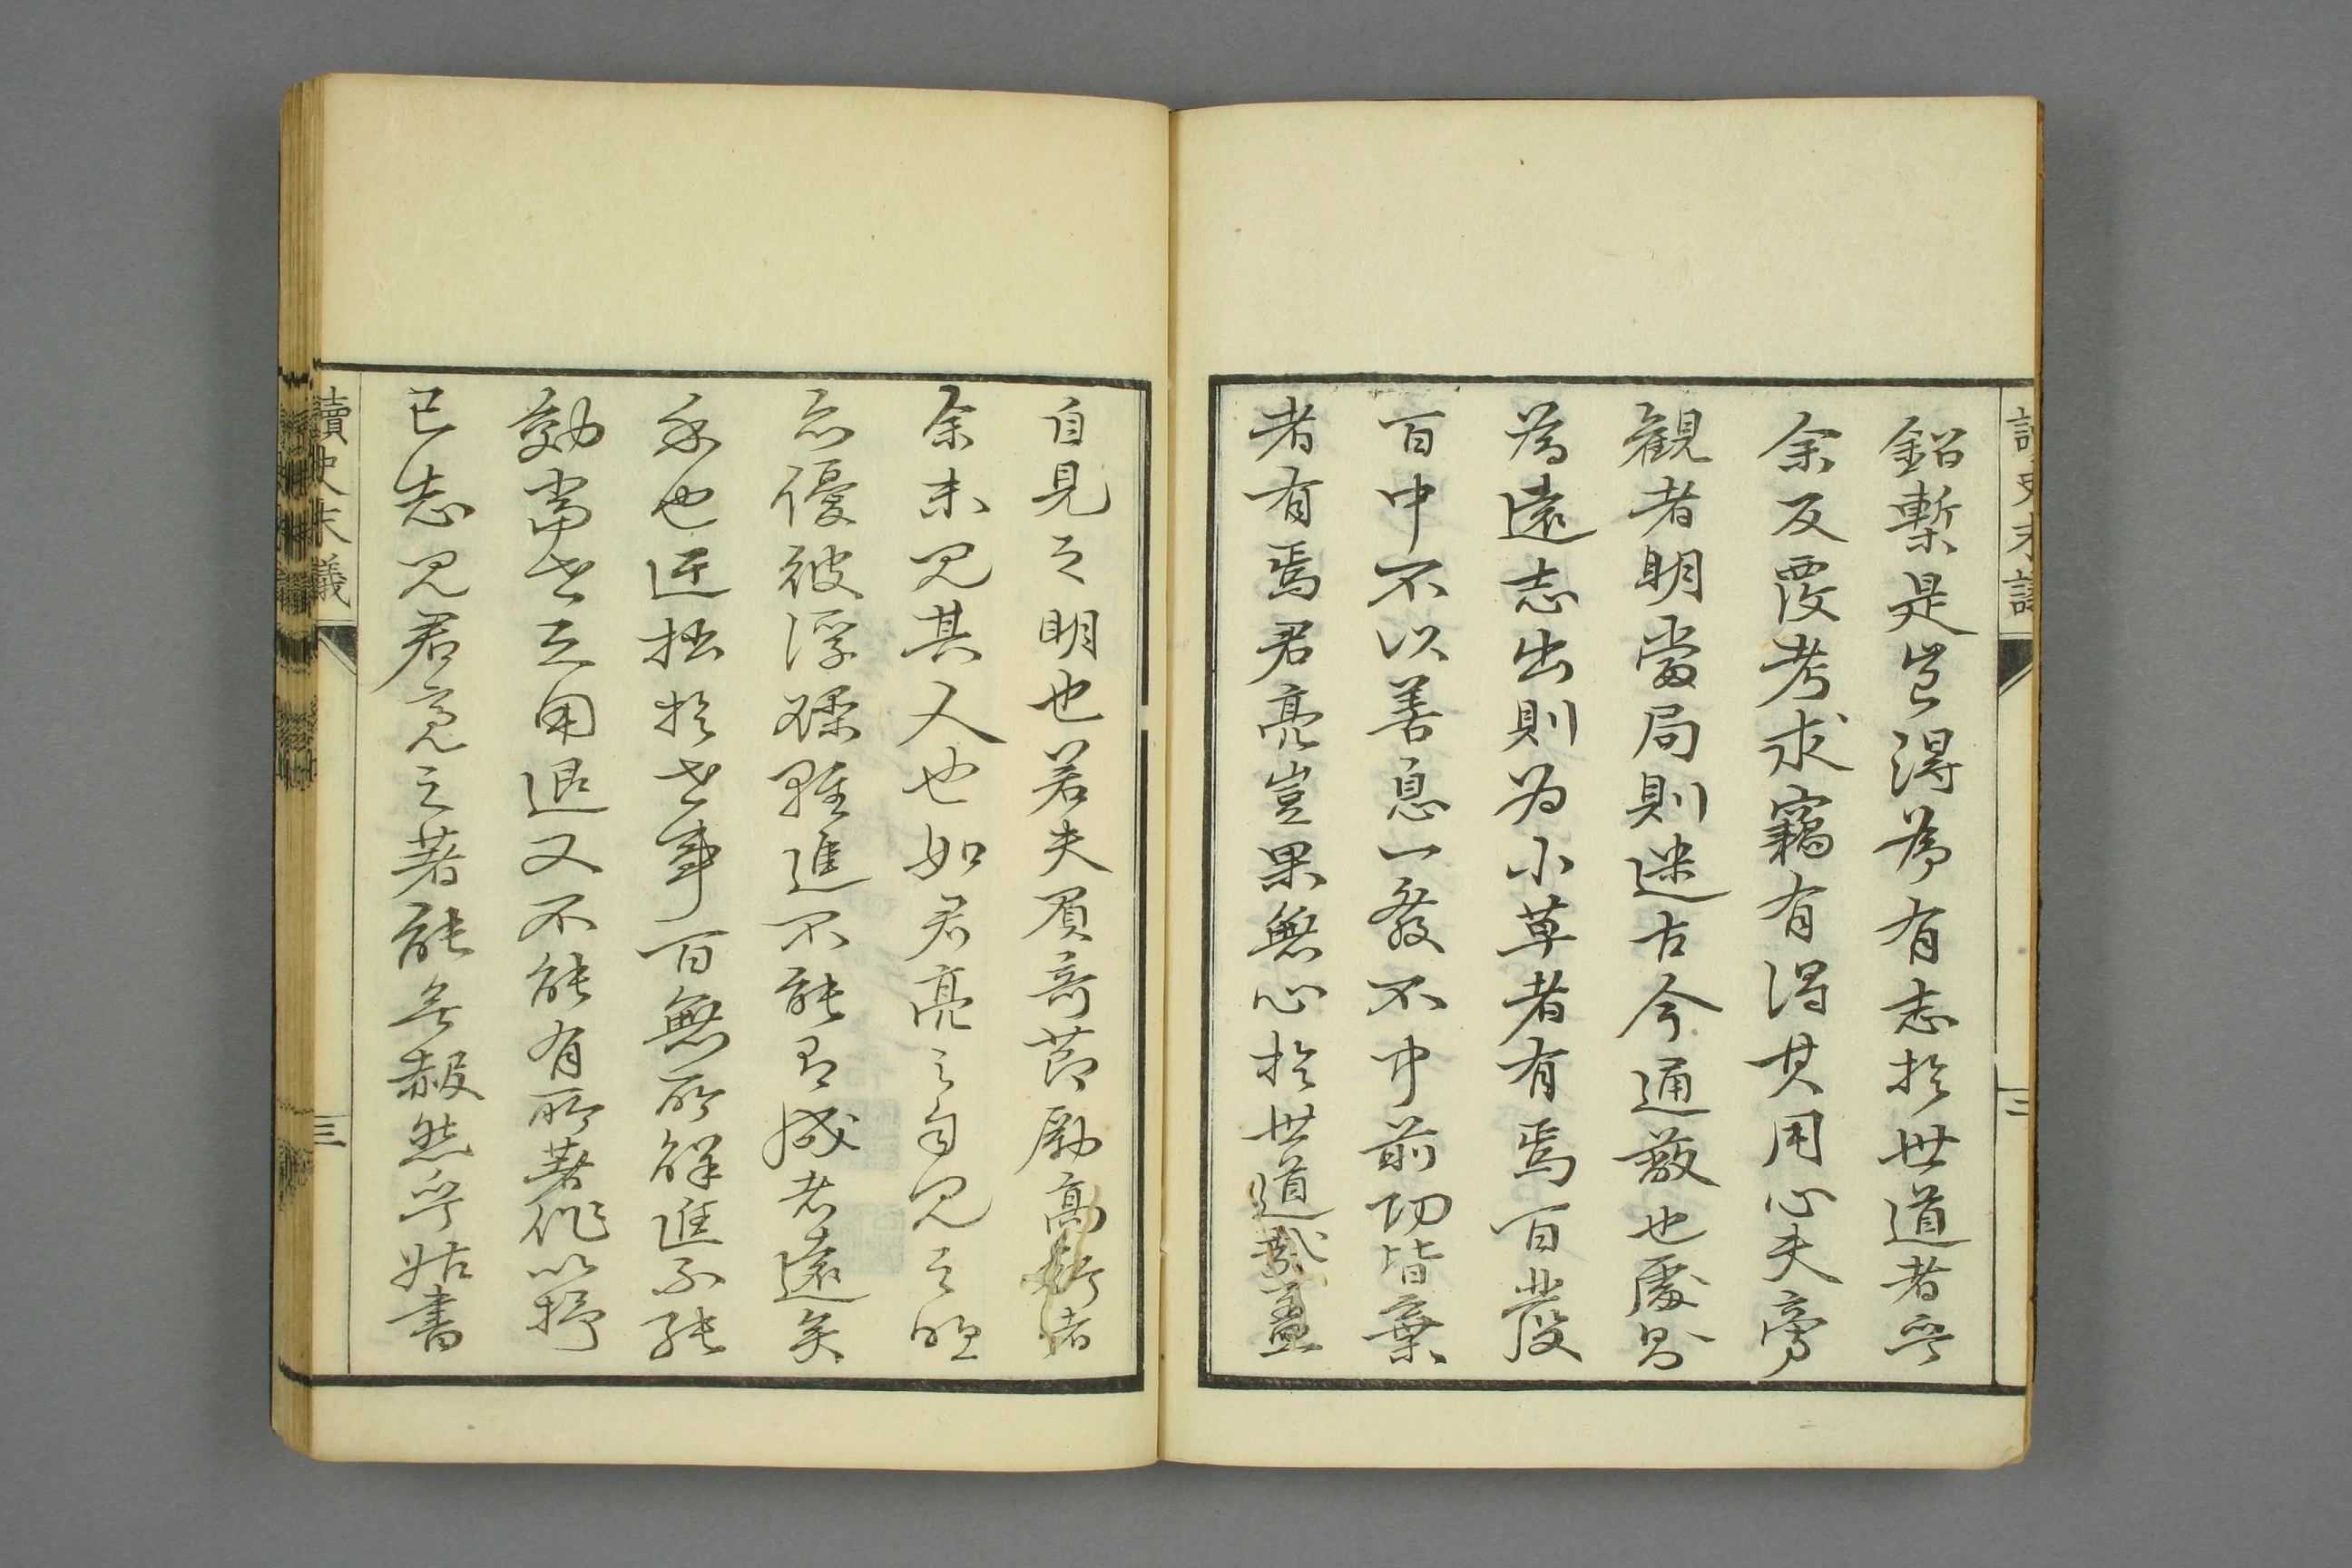 鉛槧是豈得為有志於世道者乎
余反覆考求竊有得其用心夫旁
觀者明當局則迷古今通蔽也處則
為遠志出則為小草者有焉百發
百中不以善息一發不中前功皆棄
者有焉君亮豈果無心於世道哉蓋
自見之明也若夫負奇節勵高行者
余未見其人也如君亮之自見之明
亦優彼浮躁雖進不能有成者遠矣
余也迂拙於世事百無所解進不能
効當世之用退又不能有所著作以抒
己志見君亮之著能無赧然乎姑書
讀史末議
三